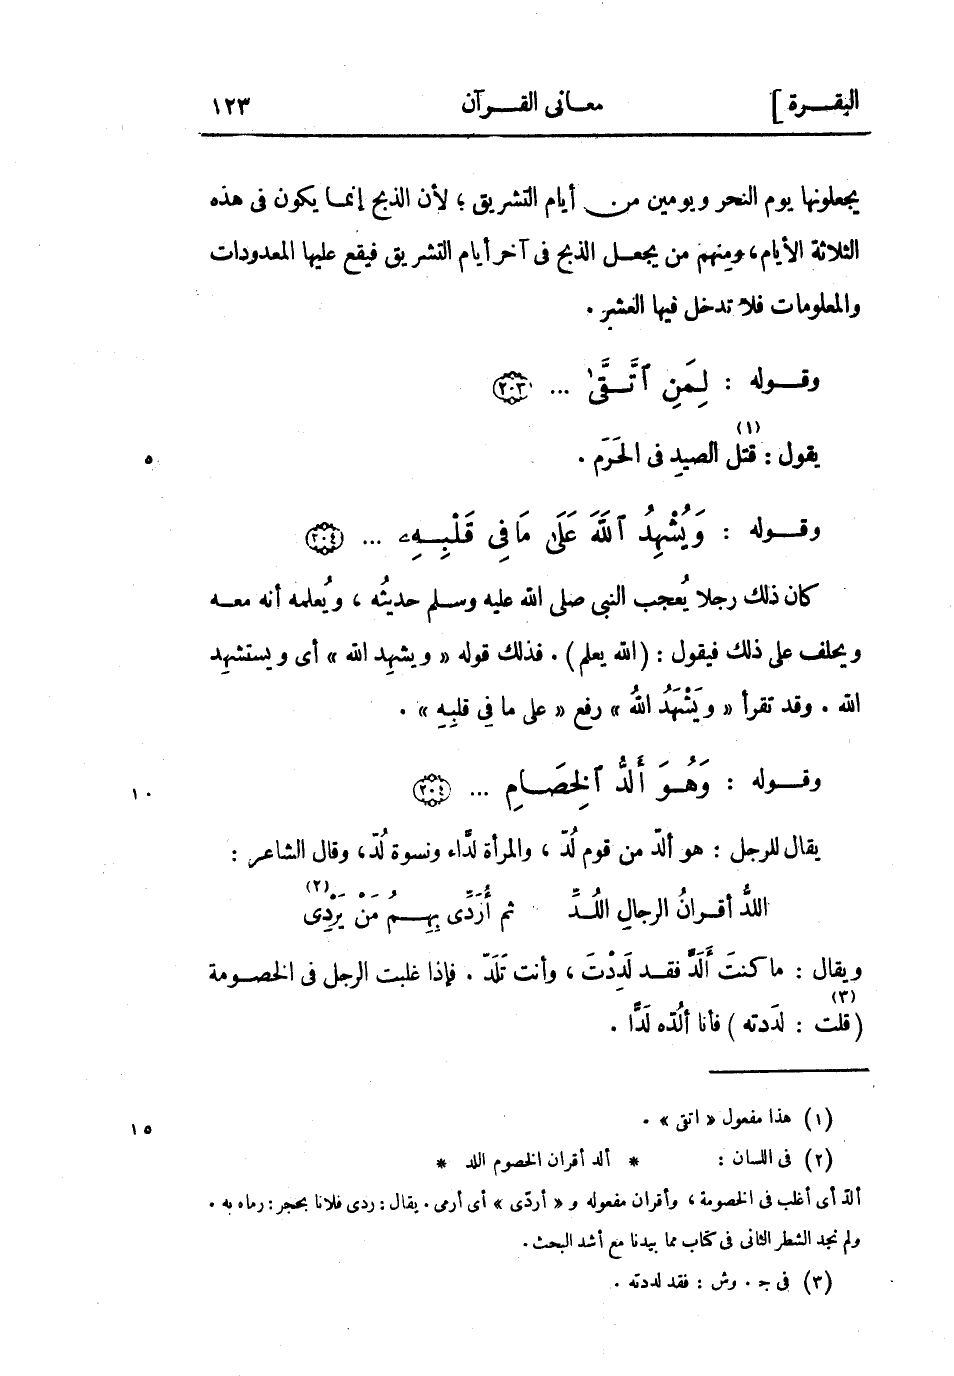 البقرة ] معانى القرآن ١٢٣
يجعلونها يوم النحر ويومين من أيام التشريق ؛ لأن الذبح إنما يكون فى هذه
الثلاثة الأيام، ومنهم من يجعل الذبح فى آخر أيام التشريق فيقع عليها المعدودات
والمعلومات فلا تدخل فيها العشر .
وقوله : لِمَنِ ٱتَّقَىٰ ... ﴿٢٠٣﴾
يقول : قتل (١) الصيدِ فى الحَرَم . ٥
وقوله : وَيُشْهِدُ ٱللَّهَ عَلَىٰ مَا فِي قَلْبِهِۦ ... ﴿٢٠٤﴾
كان ذلك رجلا يُعجب النبى صلى الله عليه وسلم حديثُه ، ويُعلمه أنه معه
ويحلف على ذلك فيقول : (الله يعلم) . فذلك قوله « ويشهِد الله » أى ويستشهِد
الله . وقد تقرأ « ويَشْهَدُ اللهُ » رفع « على ما فِي قلبِهِ » .
وقوله : وَهُوَ أَلَدُّ ٱلْخِصَامِ ... ﴿٢٠٤﴾ ١٠
يقال للرجل : هو ألدّ من قوم لُدّ ، والمرأة لدَّاء ونسوة لُدّ، وقال الشاعر :
اللدُّ أقرانُ الرجالِ اللُدِّ ثم أُرَدِّى بِهِمُ مَنْ يَرْدِى (٢)
ويقال : ما كنتَ أَلَدَّ فقد لَدِدْتَ ، وأنت تَلَدّ . فإذا غلبت الرجل فى الخصومة
(قلت (٣) : لدَدته ) فأنا ألُدّه لَدًّا .
(١) هذا مفعول « اتقى » . ١٥
(٢) فى اللسان : * ألد أقران الخصوم اللد *
ألدّ أى أغلب فى الخصومة ، وأقران مفعوله و « أردّى » أى أرمى . يقال : ردى فلانا بحجر : رماه به .
ولم نجد الشطر الثانى فى كتاب مما بيدنا مع أشد البحث .
(٣) فى ج . وش : فقد لددته .